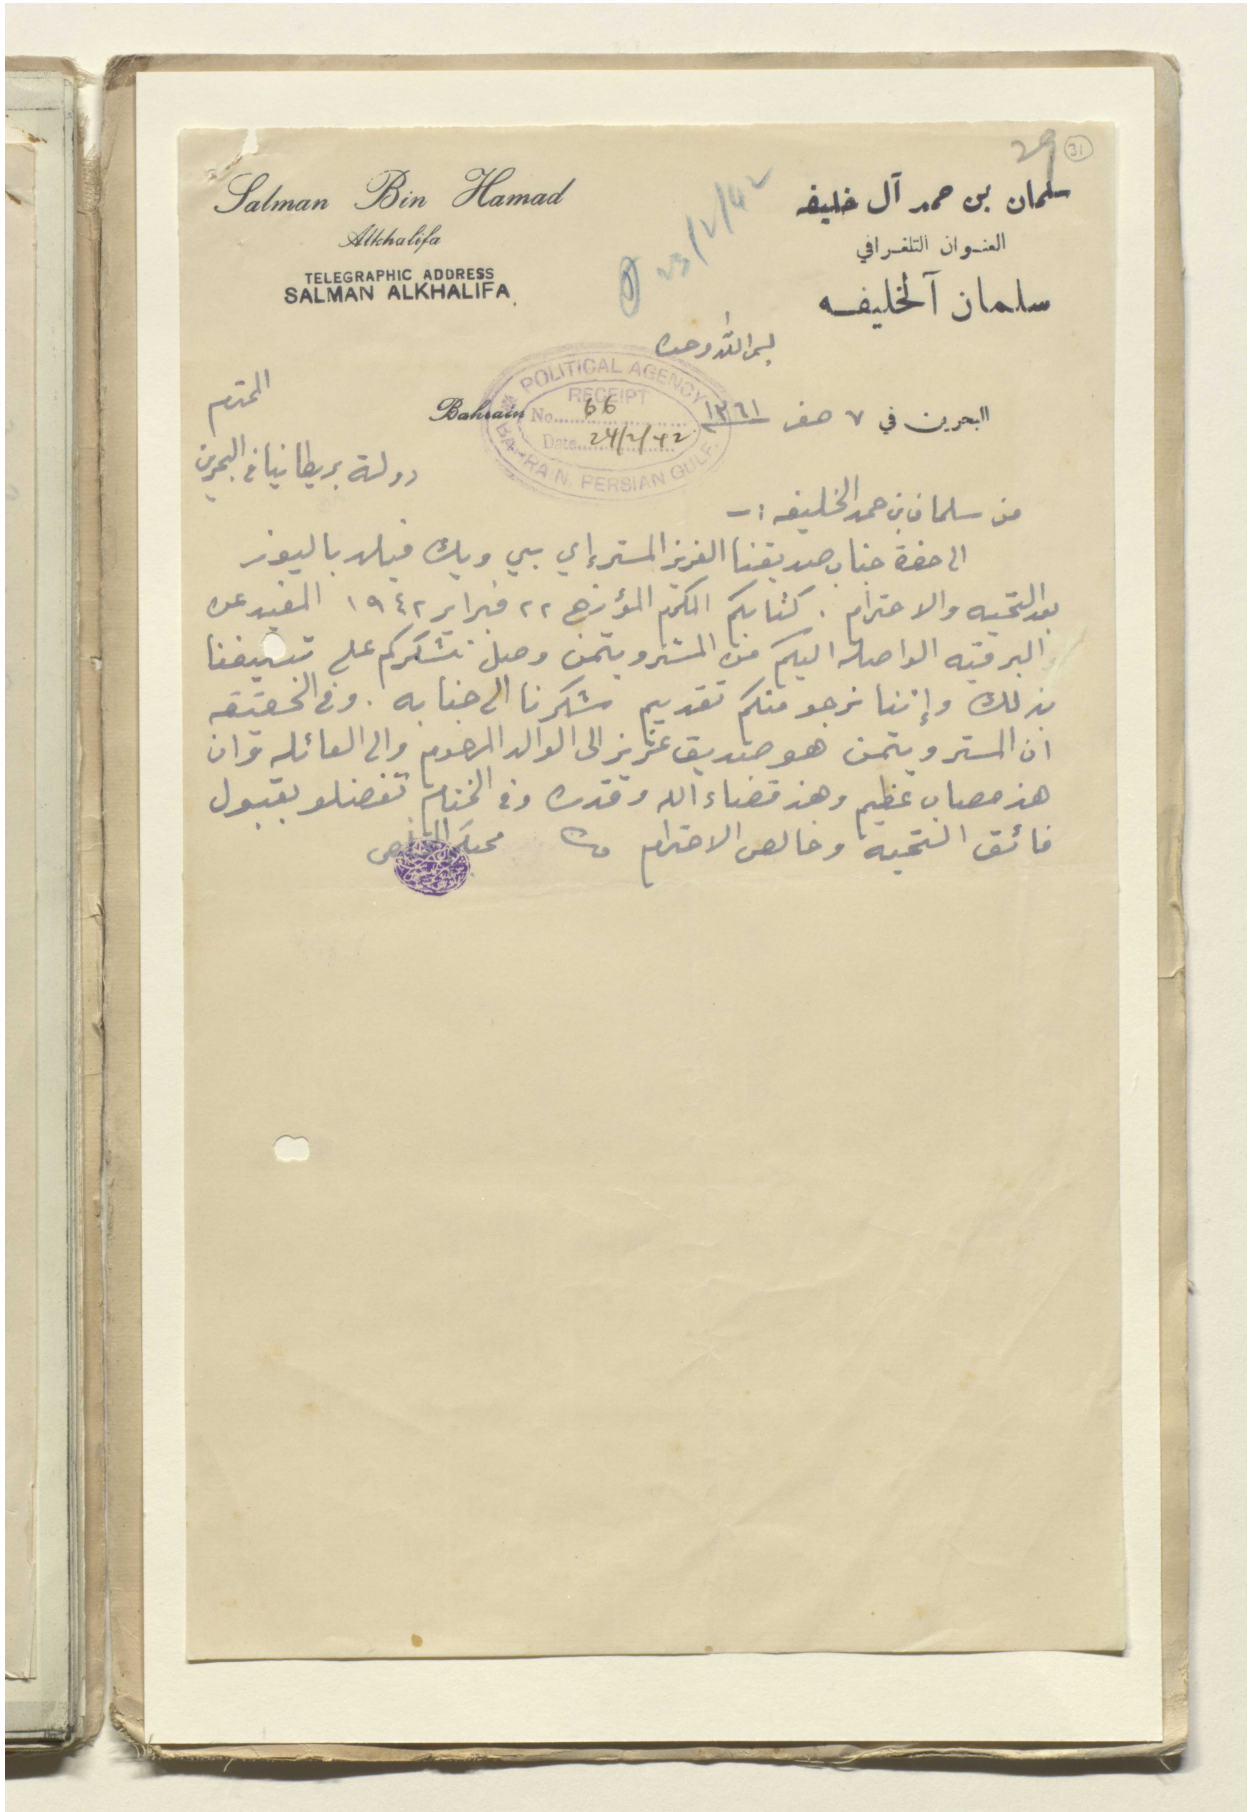 29
31
Salman Bin Hamad
Alkhalifa
TELEGRAPHIC ADDRESS
SALMAN ALKHALIFA.
سلمان بن حمد آل خليفه
العنوان التلغرافي
سلمان آلخليفه
23/2/42
بسم الله وحده
POLITICAL AGENCY
RECEIPT
No. 66
Date 24/2/42
BAHRAIN, PERSIAN GULF.
Bahrain
البحرين في ٧ صفر ١٣٦١
من سلمان بن حمد الخليفه :-
المحترم
الى حضرة جناب صديقنا العزيز المستر إي بي ويك فيلد باليوز
دولة بريطانيا في البحرين
بعد التحيه والاحترام . كتابكم المكرم المؤرخ ٢٢ فبراير ١٩٤٢ المفيد عن
البرقيه الواصله اليكم من المستر ويتمن وصل نتشكركم على تعريفنا
بذلك وإننا نرجو منكم تقديم شكرنا الى جنابه . وفي الحقيقه
ان المستر ويتمن هو صديق عزيز الى الوالد المرحوم والى العائله وان
هذ مصاب عظيم وهذ قضاء الله وقدره وفي الختام تفضلو بقبول
فائق التحيه وخالص الاحترام محبكم المخلص